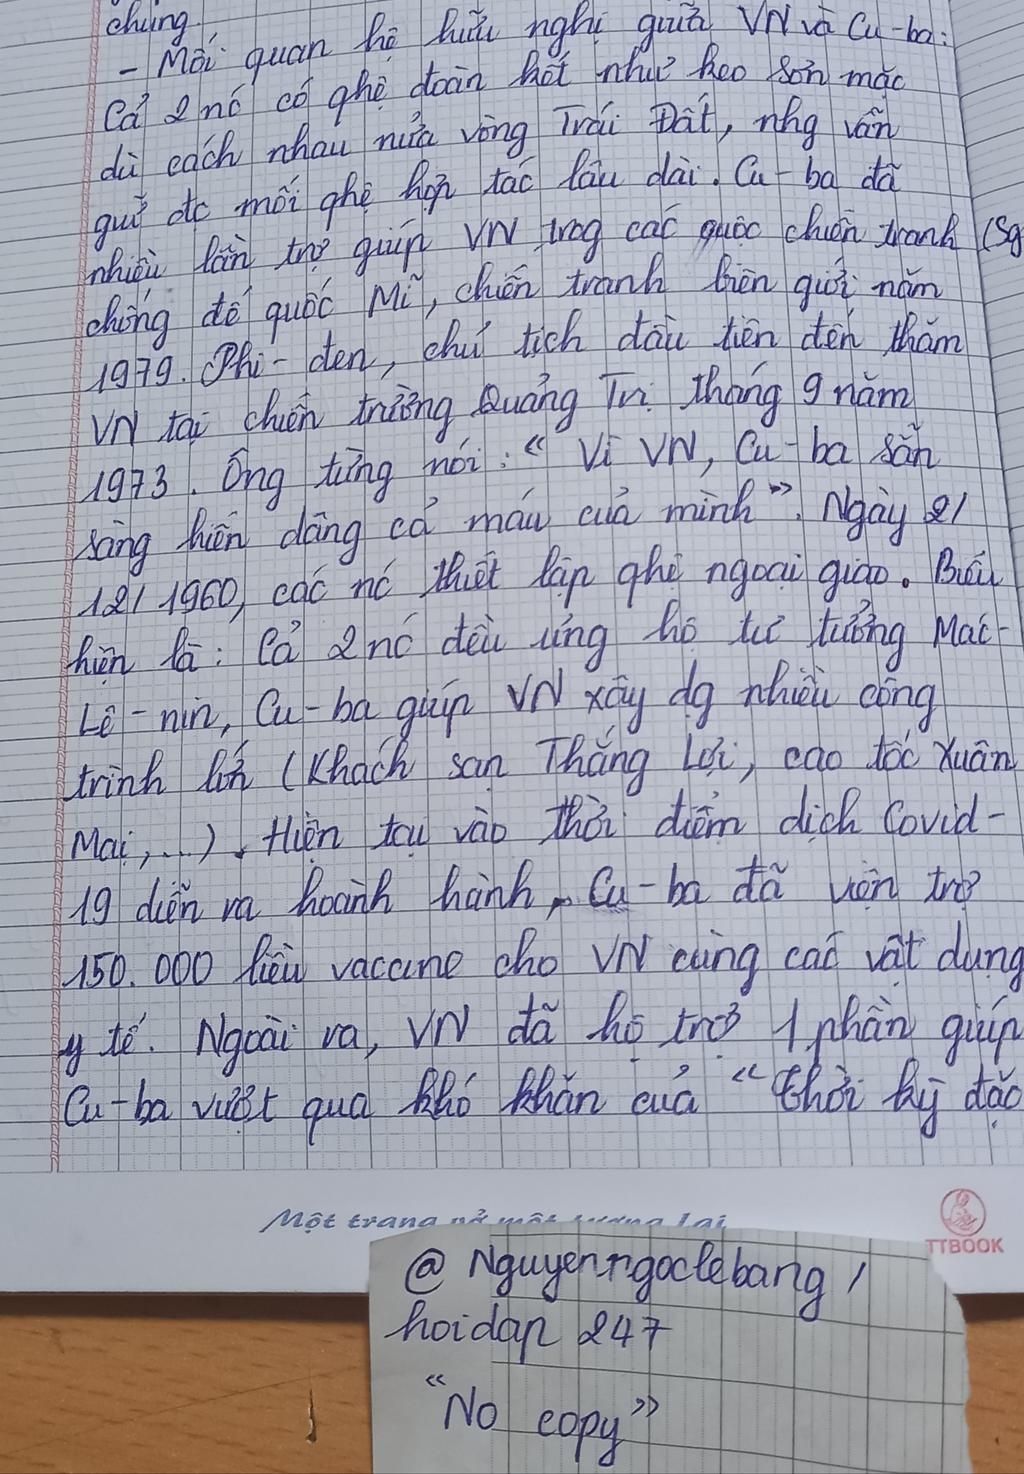 chung.
- Mối quan hệ hữu nghị giữa VN và Cu-ba:
Cả 2 nc có qhệ đoàn kết như keo sơn mặc
dù cách nhau nửa vòng Trái Đất, nhg vẫn
giữ đc mối qhệ hợp tác lâu dài. Cu-ba đã
nhiều lần trợ giúp VN trog các quộc chiến tranh (Sg
chống đế quốc Mĩ, chiến tranh biên giới năm
1979. Phi-đen, chủ tịch đầu tiên đến thăm
VN tại chiến trường Quảng Trị tháng 9 năm
1973. Ông từng nói: "Vì VN, Cu-ba sẵn
sàng hiến dâng cả máu của mình". Ngày 2/
12/1960, các nc thiết lập qhệ ngoại giao. Biểu
hiện là: Cả 2 nc đều ủng hộ tư tưởng Mác-
Lê-nin, Cu-ba giúp VN xây dg nhiều công
trình lớn (Khách sạn Thắng Lợi, cao tốc Xuân
Mai,...). Hiện tại vào thời điểm dịch Covid-
19 diễn ra hoành hành, Cu-ba đã viện trợ
150.000 liều vaccine cho VN cùng các vật dụng
y tế. Ngoài ra, VN đã hỗ trợ 1 phần giúp
Cu-ba vượt qua khó khăn của "thời kỳ đặc
Một trang vở một tương lai
TTBOOK
@ Nguyenngoclebang /
hoidap 247
"No copy"